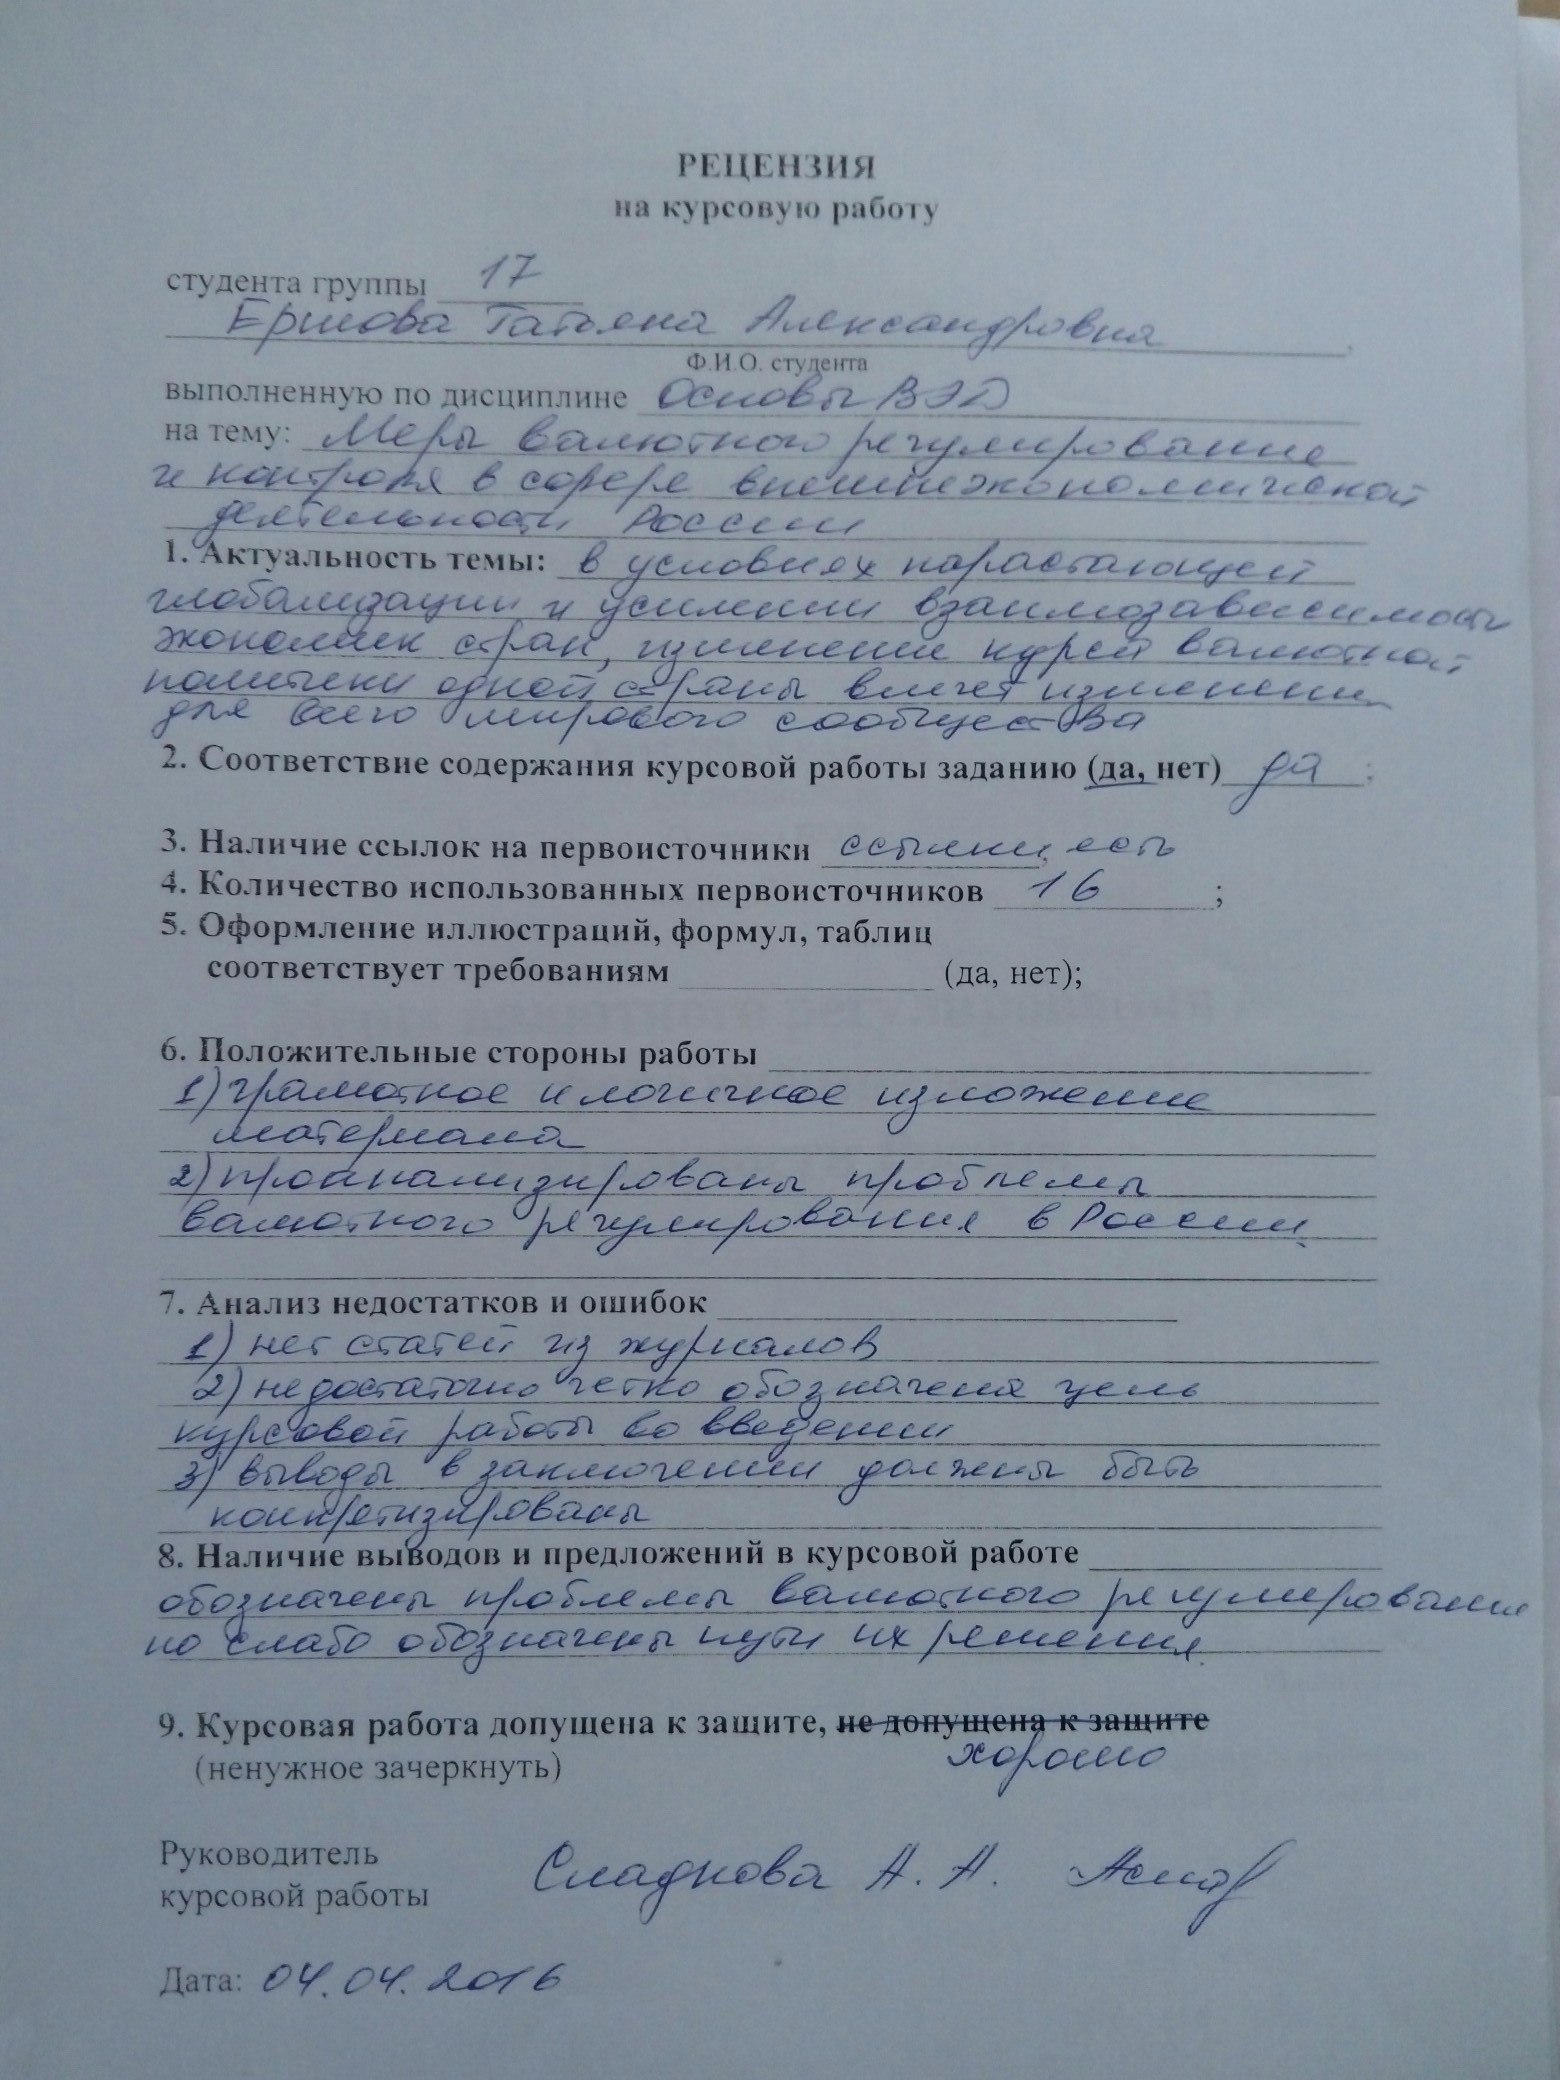 РЕЦЕНЗИЯ
на курсовую работу
студента группы 17
Ершова Татьяна Александровна
Ф.И.О. студента
выполненную по дисциплине Основы ВЭД
на тему: Меры валютного регулирования
и контроля в сфере внешнеэкономической
деятельности России
1. Актуальность темы: в условиях нарастающей
глобализации и усилении взаимозависимости
экономик стран, изменение курса валютной
политики одной страны влечет изменения
для всего мирового сообщества
2. Соответствие содержания курсовой работы заданию (да, нет) да ;
3. Наличие ссылок на первоисточники ссылки есть
4. Количество использованных первоисточников 16 ;
5. Оформление иллюстраций, формул, таблиц
соответствует требованиям (да, нет);
6. Положительные стороны работы
1) грамотное и логичное изложение
материала
2) проанализированы проблемы
валютного регулирования в России.
7. Анализ недостатков и ошибок
1) нет статей из журналов
2) недостаточно четко обозначена цель
курсовой работы во введении
3) выводы в заключении должны быть
конкретизированы
8. Наличие выводов и предложений в курсовой работе
обозначены проблемы валютного регулирования
но слабо обозначены пути их решения.
9. Курсовая работа допущена к защите, не допущена к защите
(ненужное зачеркнуть) хорошо
Руководитель
курсовой работы Сладкова А. А.
Дата: 04.04.2016